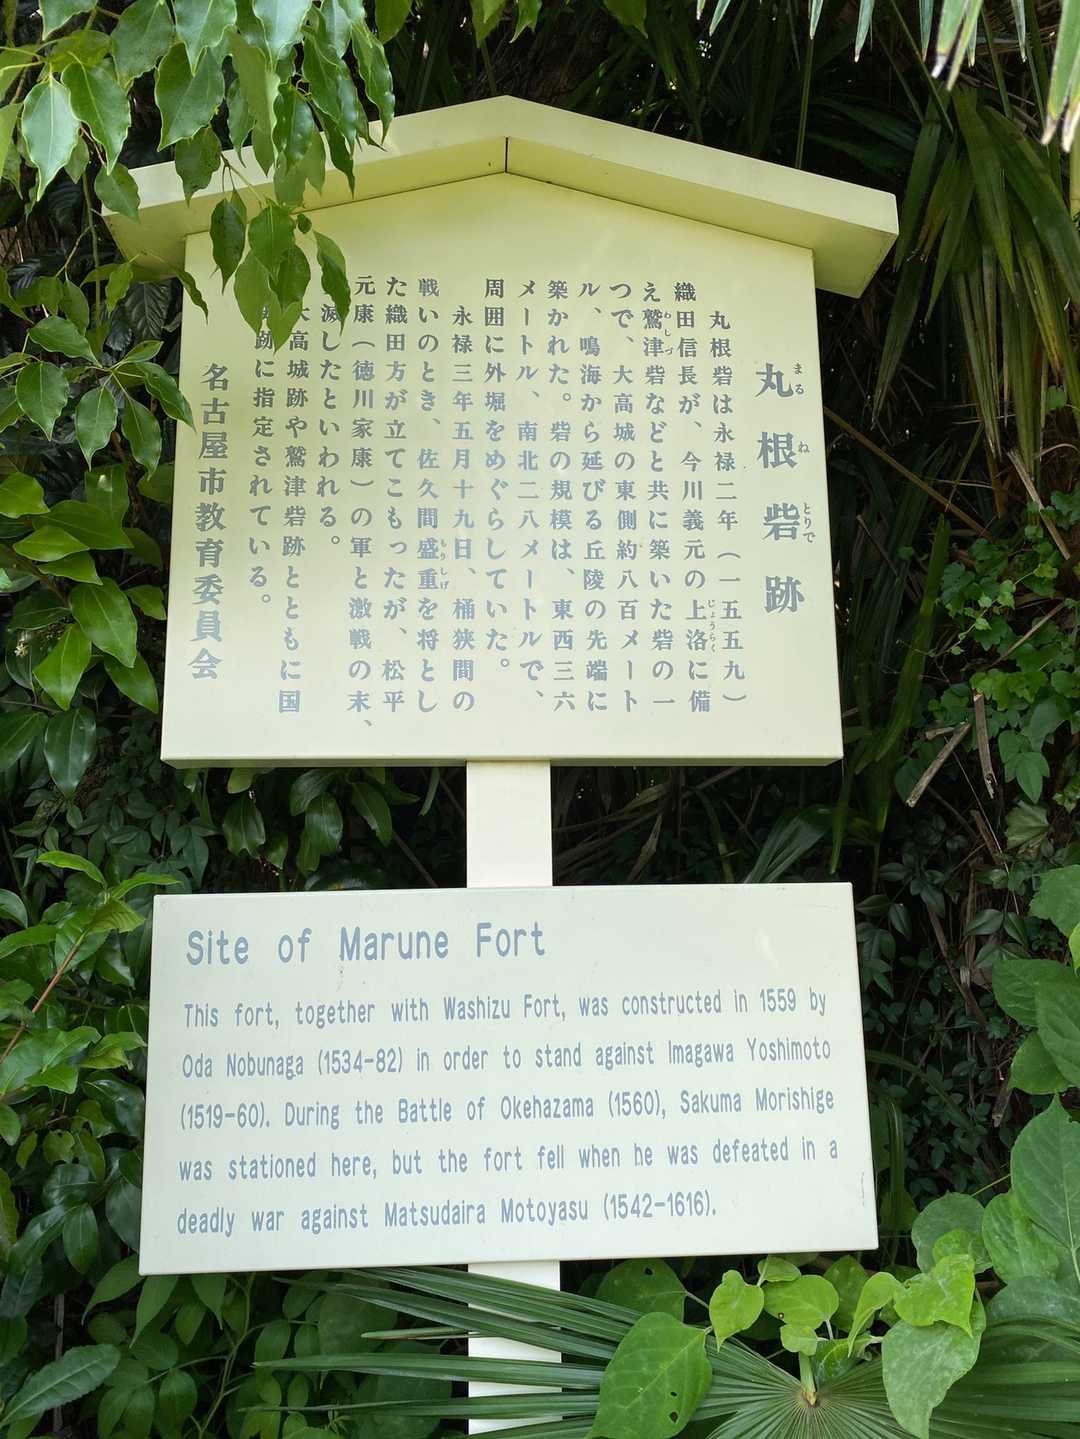 丸根砦跡
まる ね とりで
丸根砦は永禄二年(一五五九)
織田信長が、今川義元の上洛に備
じょうらく
え鷲津砦などと共に築いた砦の一
わしづ
つで、大高城の東側約八百メート
ル、鳴海から延びる丘陵の先端に
築かれた。砦の規模は、東西三六
メートル、南北二八メートルで、
周囲に外堀をめぐらしていた。
永禄三年五月十九日、桶狭間の
戦いのとき、佐久間盛重を将とし
もりしげ
た織田方が立てこもったが、松平
元康(徳川家康)の軍と激戦の末、
滅したといわれる。
大高城跡や鷲津砦跡とともに国
跡に指定されている。
名古屋市教育委員会
Site of Marune Fort
This fort, together with Washizu Fort, was constructed in 1559 by
Oda Nobunaga (1534-82) in order to stand against Imagawa Yoshimoto
(1519-60). During the Battle of Okehazama (1560), Sakuma Morishige
was stationed here, but the fort fell when he was defeated in a
deadly war against Matsudaira Motoyasu (1542-1616).